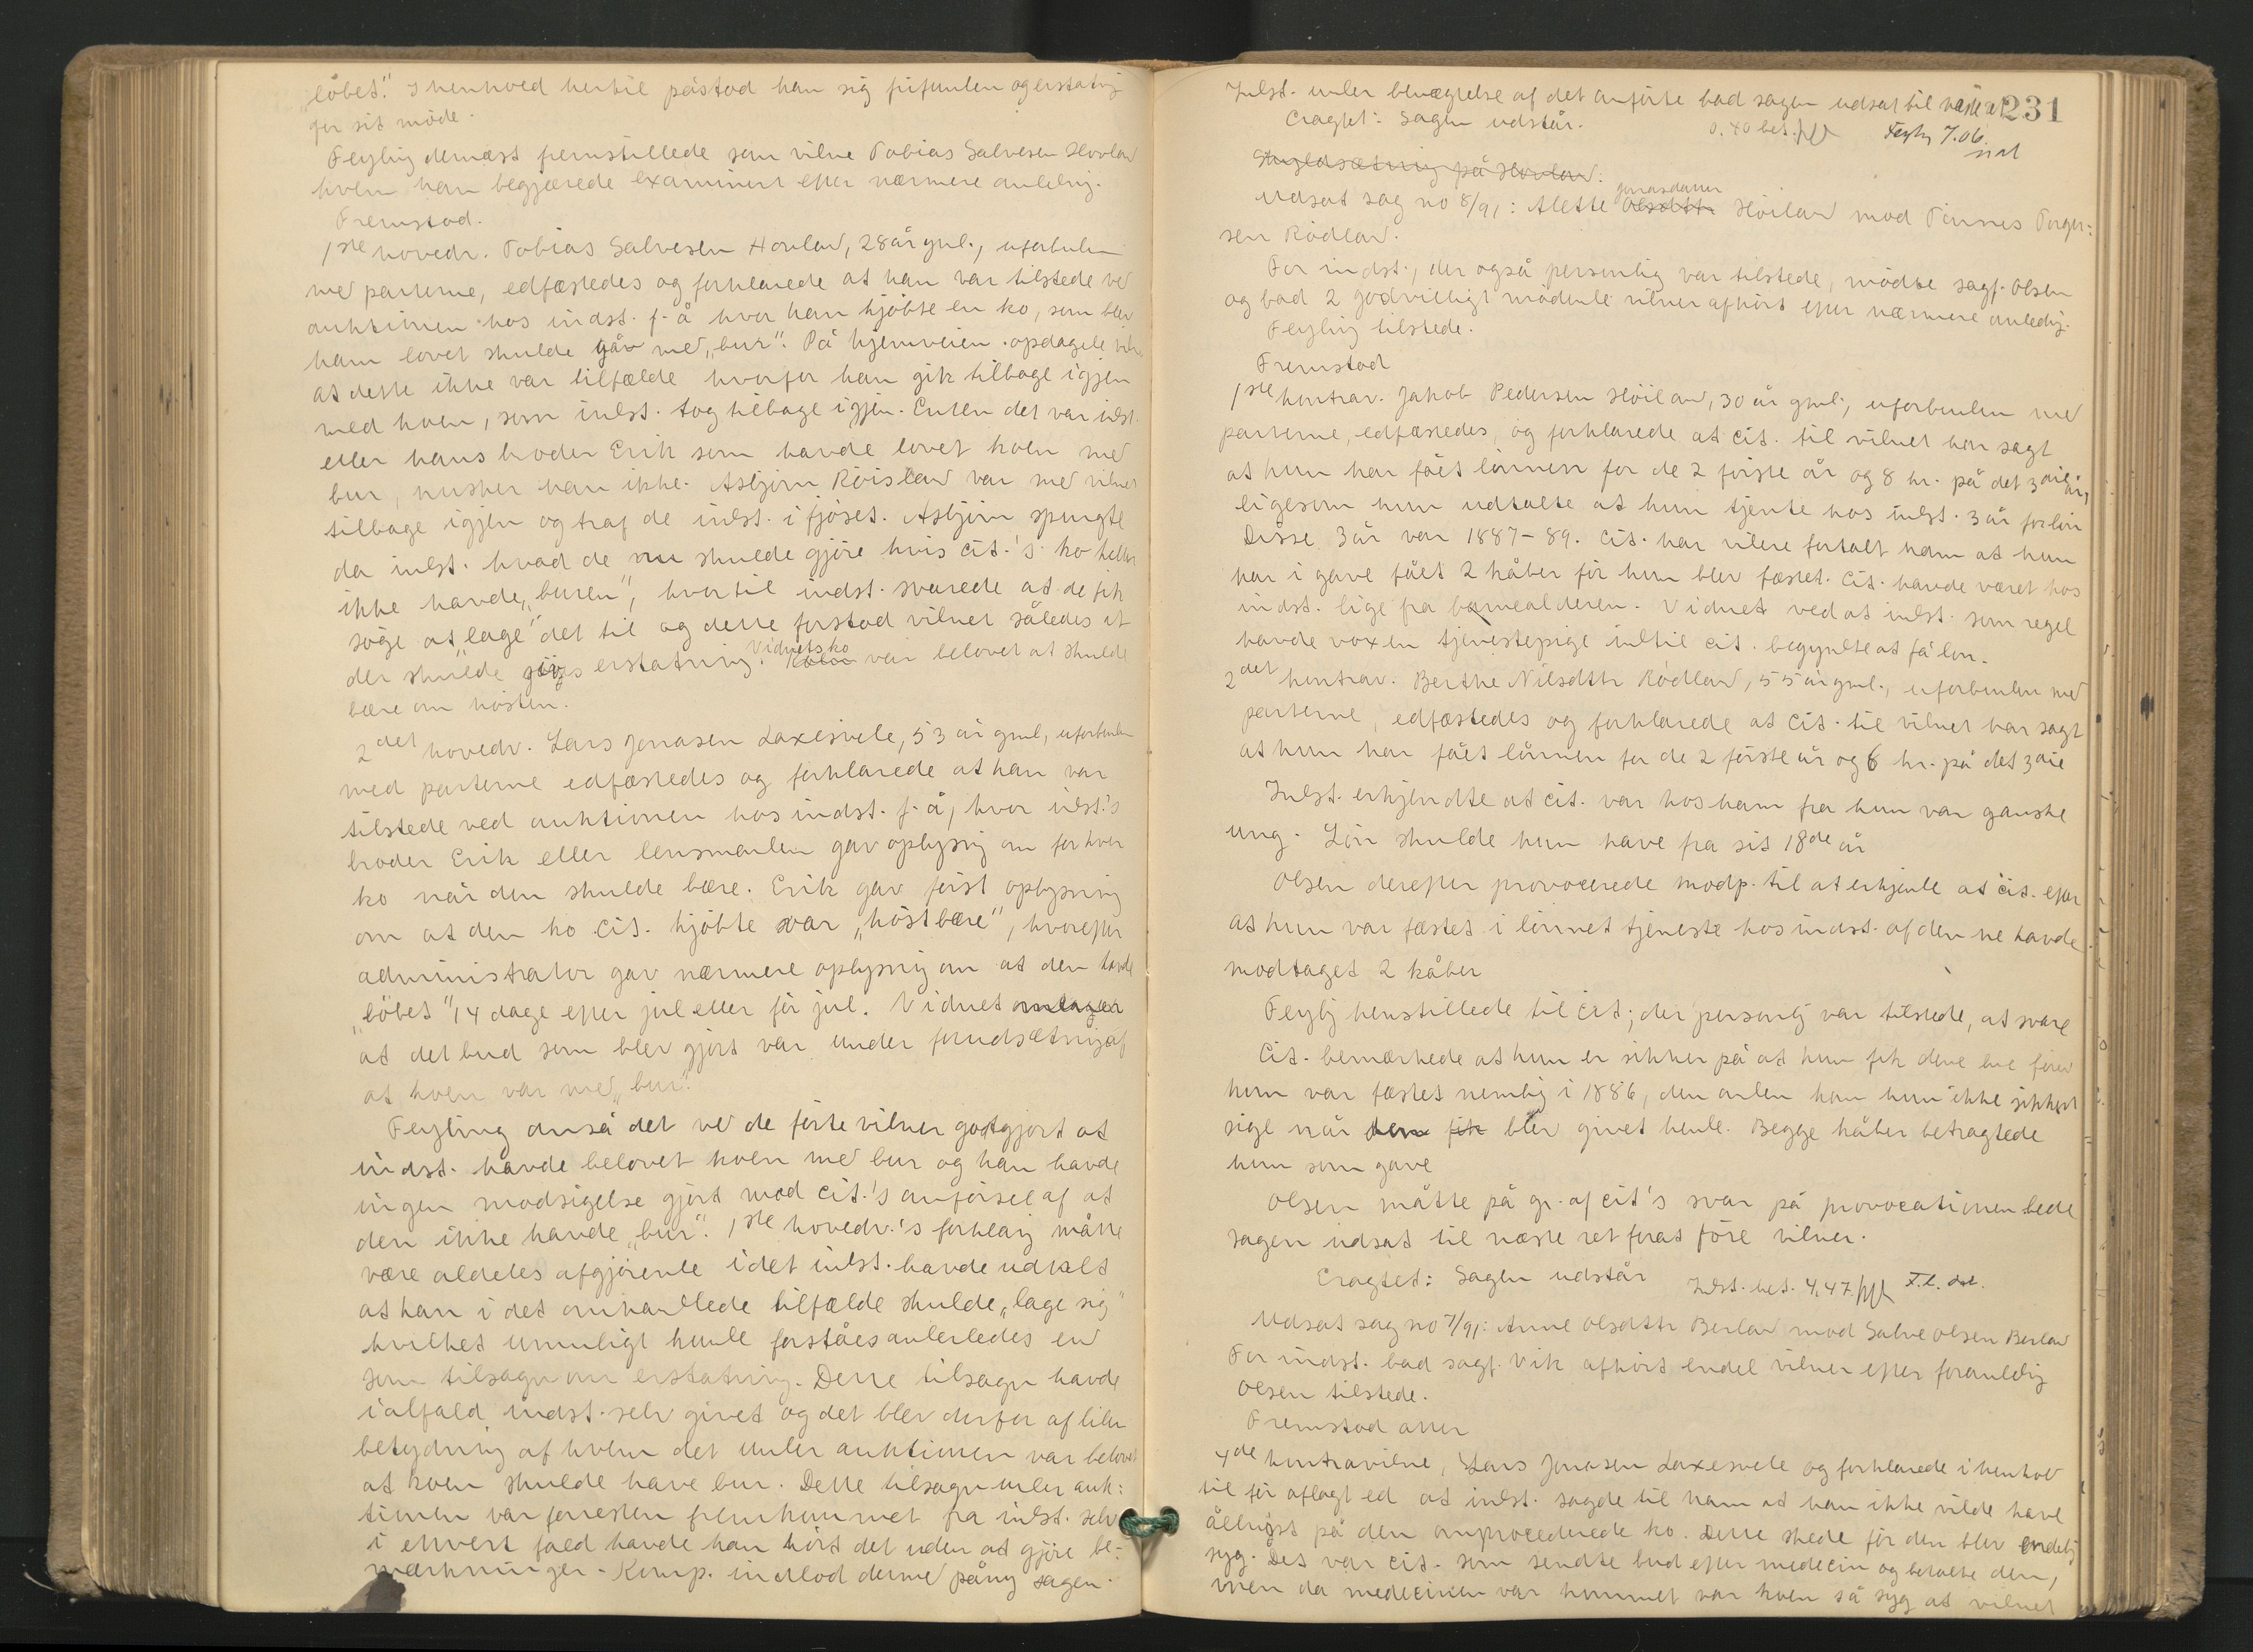 löbet." I henhold hertil påstod han sig frifunden og erstatnig
for sit möde.
Feyling dernæst fremstillede som vidne Tobias Salvesen Hovland
hvem han begjærede examineret efter nærmere anledng.
Fremstod.
1ste hovedv. Tobias Salvesen Hovland, 28 år gml., uforbunden
med parterne, edfæstedes og forklarede at han var tilstede ved
auktionen hos indst. f. å hvor han kjöbte en ko, som blev
ham lovet skulde gå med "bur". På hjemveien opdagede vidn.
at dette ikke var tilfælde hvorfor han gik tilbage igjen
med koen, som indst. tog tilbage igjen. Enten det var indst.
eller hans broder Erik som havde lovet koen med
bur, husker han ikke. Asbjörn Röisland var med vidnet
tilbage igjen og traf de indst. i fjöset. Asbjörn spurgte
da indst. hvad de nu skulde gjöre hvis cit.'s ko heller
ikke havde "buren", hvortil indst. svarede at de fik
söge at "lage" det til og dette forstod vidnet således at
der skulde gives erstatning. Vidnets ko var belovet at skulde
bære om hösten.
2det hovedv. Lars Jonasen Laxesvele, 53 år gml, uforbunden
med parterne edfæstedes og forklarede at han var
tilstede ved auktionen hos indst. f. å, hvor indst.'s
broder Erik eller lensmanden gav oplysnig om for hver
ko når den skulde bære. Erik gav först oplysning
om at den ko cit. kjöbte var "höstbære", hvorefter
administrator gav nærmere oplysnig om at den havde
"löbet" 14 dage efter jul eller för jul. Vidnet antager
at det bud som blev gjort var under forudsætning af
at koen var med "bur".
Feyling anså det ved de förte vidner godtgjort at
indst. havde belovet koen med bur og han havde
ingen modsigelse gjort mod cit.'s anförsel af at
den ikke havde "bur". 1ste hovedv.'s forklarig måtte
være aldeles afgjörende idet indst. havde udtalt
at han i det omhandlede tilfælde skulde "lage sig"
hvilket umuligt kunde forståes anderledes end
som tilsagn om erstatning. Dette tilsagn havde
ialfald indst. selv givet og det blev derfor af liden
betydning af hvem det under auktionen var belovet
at koen skulde have bur. Dette tilsagn under auk:
tionen var forresten fremkommet fra indst. selv
i ethvert fald havde han hört det uden at gjöre be:
mærkninger. Komp. indlod dermed påny sagen.
231
Indst. under benægtelse af det anförte bad sagen udsat til næste ret
Eragtet: Sagen udstår. 0.40 bet. Feylg 7.06
Saugledsætning på Hovland.
Udsat sag no 8/91: Alette Olsdttr Jonasdatter Höiland mod Tönnes Torger:
sen Rödland.
For indst., der også personlig var tilstede, mödte sagf. Olsen
og bad 2 godvilligt mödende vidner afhört efter nærmere anledng.
Feyling tilstede.
Fremstod
1ste kontrav. Jakob Pedersen Höiland, 30 år gml., uforbunden med
parterne, edfæstedes og forklarede at cit. til vidnet har sagt
at hun har fået lönnen for de 2 förste år og 8 kr. på det 3die år,
ligesom hun udtalte at hun tjente hos indst. 3 år for lön
Disse 3 år var 1887-89. Cit. har videre fortalt ham at hun
har i gave fået 2 kåber för hun blev fæstet. Cit. havde været hos
indst. lige fra barnealderen. Vidnet ved at indst. som regel
havde voxen tjenestepige indtil cit. begyndte at få lön.
2det kontrav. Berthe Nilsdttr Rödland, 55 år gml., uforbunden med
parterne, edfæstedes og forklarede at cit. til vidnet har sagt
at hun har fået lönnen for de 2 förste år og 6 kr. på det 3die
Indst. erkjendte at cit. var hos ham fra hun var ganske
ung. Lön skulde hun have fra sit 18de år
Olsen derefter provocerede modp. til at erkjende at cit. efter
at hun var fæstet i lönnet tjeneste hos indst. af denne havde
modtaget 2 kåber
Feylig henstillede til cit., der personlig var tilstede, at svare
Cit. bemærkede at hun er sikker på at hun fik den ene förend
hun var fæstet nemlig i 1886, den anden kan hun ikke sikkert
sige når den fik blev givet hende. Begge kåber betragtede
hun som gave
Olsen måtte på gr. af cit's svar på provocationen bede
sagen udsat til næste ret for at före vidner.
Eragtet: Sagen udstår Indst. bet. 4.47
Udsat sag no 7/91: Anne Olsdttr Berland mod Salve Olsen Berland
For indst. bad sagf. Vik afhört endel vidner efter foranledig
Olsen tilstede.
Fremstod atter
4de kontravidne, Lars Jonasen Laxesvele og forklarede i henhold
til för aflagt ed at indst. sagde til ham at han ikke vilde have
på den omprocederede ko. Dette skede för den blev endelig
syg. Det var cit. som sendte bud efter medecin og betalte den,
men da medecinen var kommet var koen så syg at vidnet